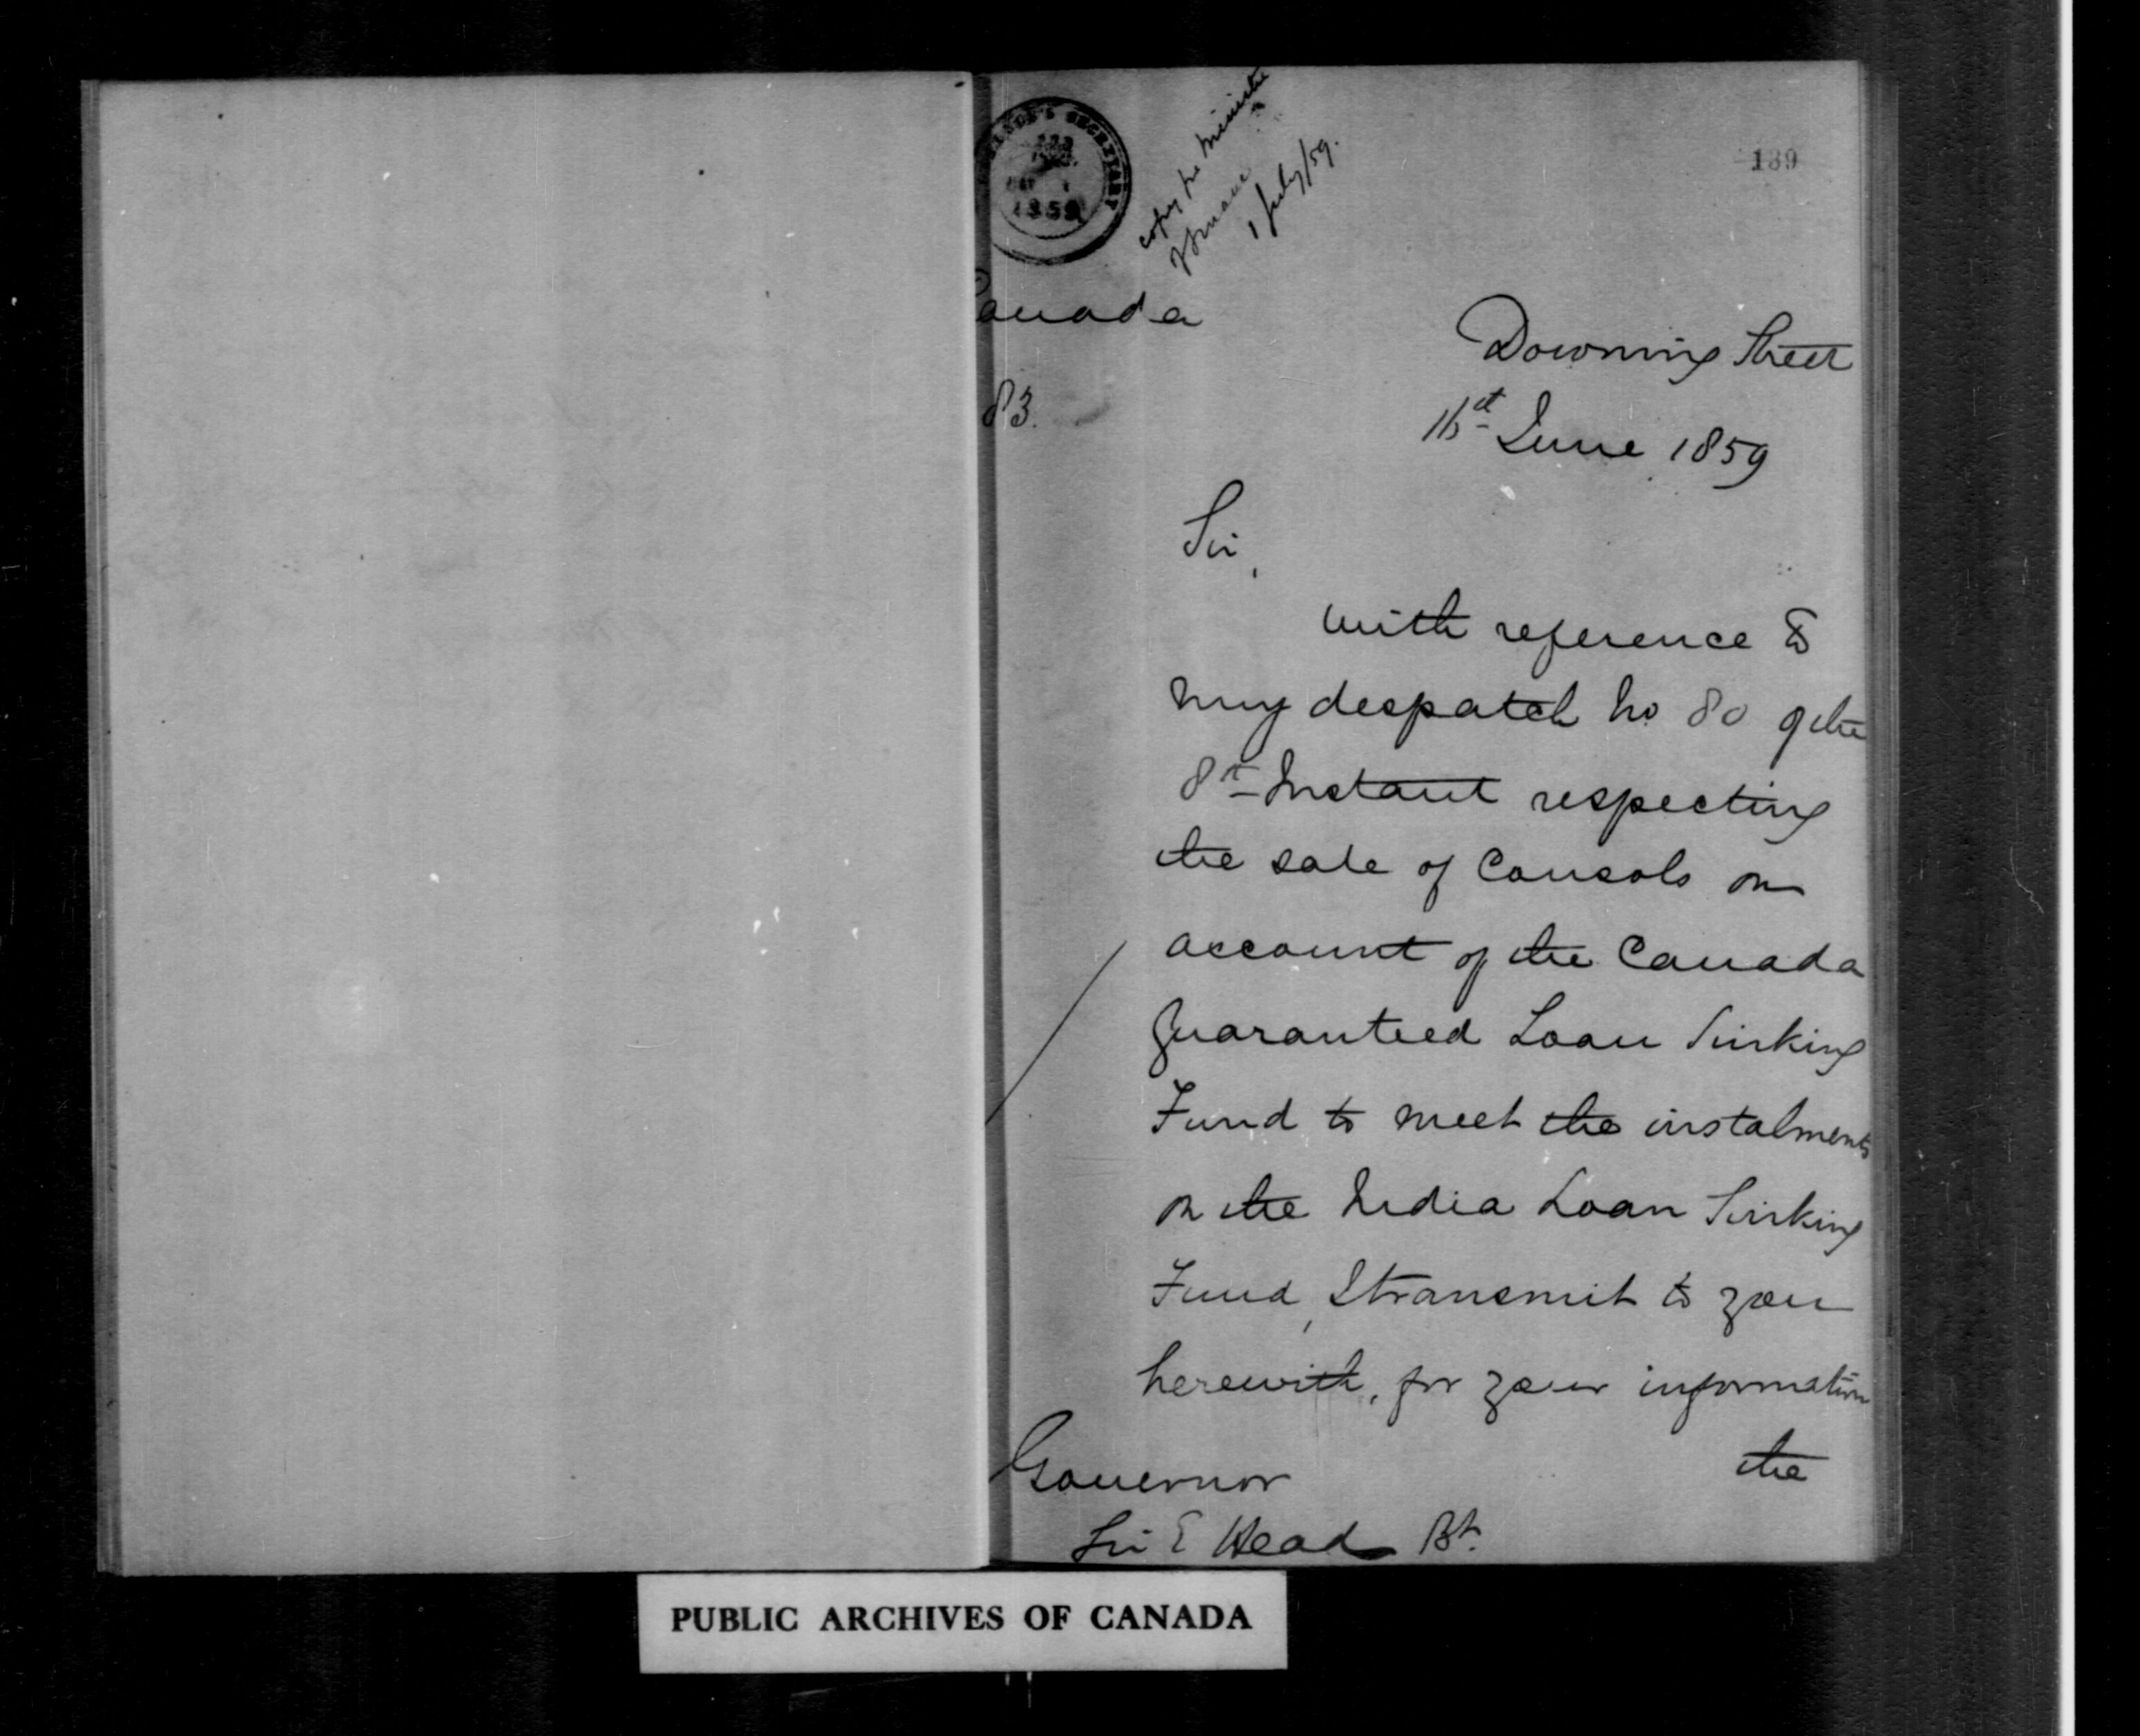 139
SECRETARY
1859
copy for Minister
Finance
1 July/59.
Canada
Downing Street
83.
June 1859
Sir,
with reference to
my despatch No 80 of the
8th Instant respecting
the sale of Consols on
account of the Canada
Guaranteed Loan Sinking
Fund to meet the instalments
on the India Loan Sinking
Fund, I transmit to you
herewith, for your information
the
Governor
Sir E Head Bt.
PUBLIC ARCHIVES OF CANADA